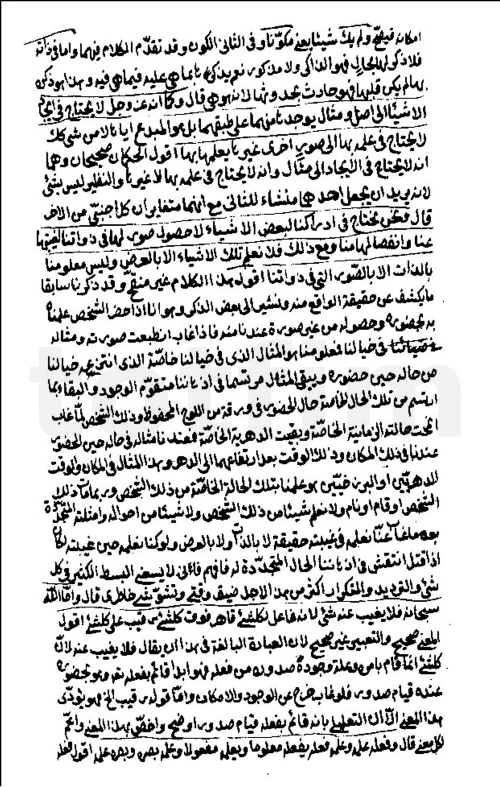 امكانه فيقبح ولم يك شيئا يعنى مكونا وفى الثانى الكون وقد تقدم الكلام فيهما واما فى ذاته
فلا ذكر لها بحال فهو الذاكر ولا مذكور نعم يذكرها بما هى عليه فيما هى فيه وهذا هو ذكره
بها لم يكن قبلها فهو حادث بحدوثها لانه هو هى قال وكما انه عز وجل لا يحتاج فى ايجاد
الاشياء الى اصل ومثال يوجد ثامنهما على طبقهما بل هو المبدع اياها لا من شىء كذلك
لا يحتاج فى علمه بها الى صور اخرى غيرها يعلمها بها اقول الحكمان صحيحان وهما
انه لا يحتاج فى الايجاد الى مثال وانه لا يحتاج فى علمه بها لا غيرها والتنظير ليس بشىء
لانه يريد ان يجعل احدهما منشاء للثانى مع انهما متغايران كل اجنبى من الاخر
قال فنحن نحتاج فى ادراكنا لبعض الاشياء لا حصول صور لها فى ذواتنا لغيبتها
عنا وانفصالها منا ومع ذلك فلا نعلم تلك الاشياء الا بالعرض وليس معلومنا
بالذات الا بالصور التى فى ذواتنا اقول هذا الكلام غير منقح وقد ذكرنا سابقا
ما يكشف عن حقيقة الواقع منه ونشير الى بعض الذكر وهو انا اذا حضر الشخص علمنا
به بحضوره وحصوله من غير صورة عندنا منه فاذا غاب انطبعت صورته ومثاله
فى خيالنا فعلومنا هو المثال الذى فى خيالنا خاصة الذى انتزعه خيالنا
من حاله حين حضوره ويبقى المثال مرتسما فى اذهاننا متقوم الوجود والبقاء بما
ارتسم من تلك الحال الخاصة حال الحضور فى ورقة من اللوح المحفوظ وذلك الشخص لما غاب
انمحت حالته الزمانية الخاصة وبقيت الدهرية الخاصة فعندنا مثاله فى حاله حين الحضور
عندنا فى ذلك المكان وذلك الوقت بعد ارتفاعهما الى الدهر وهذا المثال فى المكان والوقت
الدهريين او البرزخيين هو علمنا بتلك الحالة الخاصة من ذلك الشخص وربما مات ذلك
الشخص او قام او نام ولا نعلم شيئا من ذلك الشخص ولا شيئا من احواله وامثلته المتجددة
بعد ما غاب عنا نعلمه فى غيبته حقيقة لا بالذات ولا بالعرض ولو كنا نعلمه حين غيبته لكان
اذا قتل انتقش فى اذهاننا الحال المتجددة له فافهم فانى لا يسعنى البسط الكثير فى كل
شىء والترديد والتكرار اكثر من هذا لاجل ضيق وقتى وتشتت خاطرى قال واما الله
سبحانه فلا يغيب عنه شىء لانه فاعل لكل شىء قاهر فوق كل شىء رقيب على كل شىء اقول
المعنى صحيح والتعبير غير صحيح لان العبارة البالغة فى هذا ان يقال فلا يغيب عنه لان
كل شىء انما قام بامره وعلة وجوده صدوره من فعله فهو ابدا قائم بفعله نفسه وهو بحضوره
عنده قيام صدور فلو غاب خرج عن الوجود والامكان واما قوله رقيب الخ فهو يؤدى
هذا المعنى الا ان التعليل بانه قائم بفعله قيام صدور اوضح واخص بهذا المعنى واعم
لكل معنى قال وفعله علمه وعلمه فعله بفعله معلوما ويعلمه مفعولا وعلمه بصره وبصره علمه اقول فعله